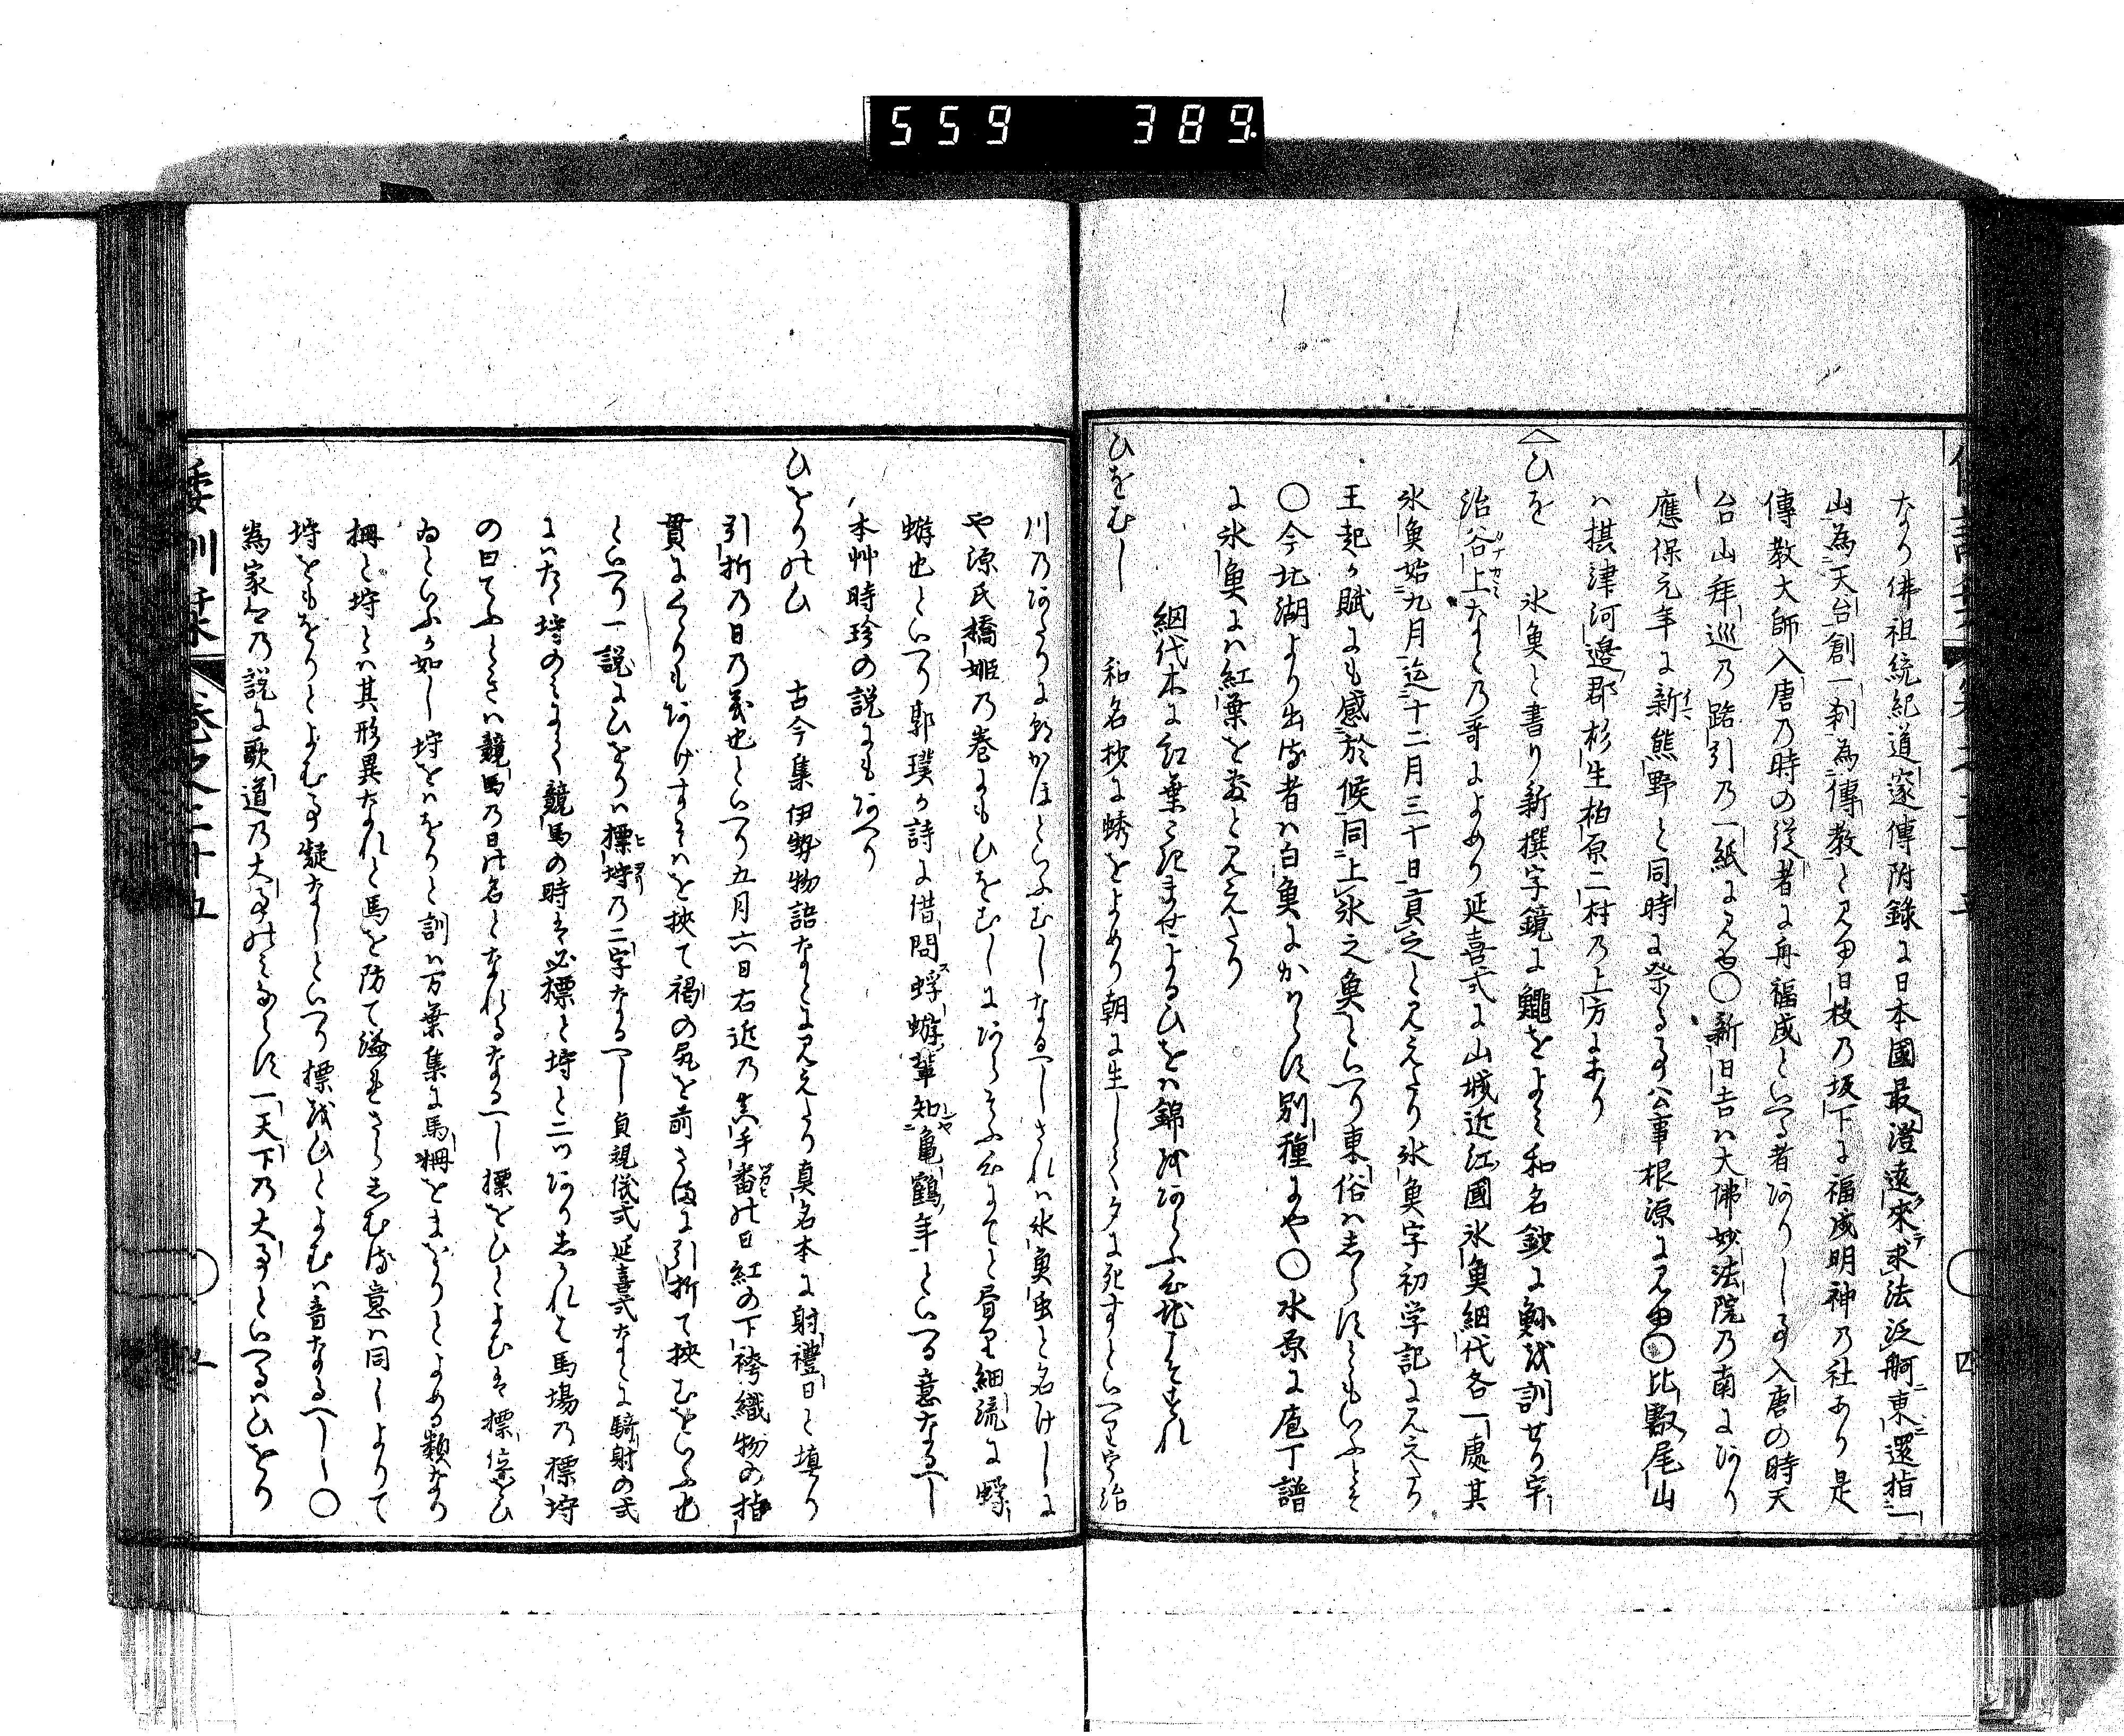 559 389.
なり佛祖統紀道邃傳附錄に日本國最澄遠來求法泛舸東還指一
山為天台創一刹為傳教と見ゆ日枝乃坂下に福成明神乃社あり是
傳教大師入唐乃時の従者に舟福成といへる者ありし事入唐の時天
台山拜巡乃路引乃一紙に見ゆ〇新日吉ハ大佛妙法院乃南にあり
應保元年に新熊野と同時に祭る事公事根源に見ゆ〇比叡尾山
ハ摂津河邉郡杉生柏原二村乃上方にあり
ひを 氷魚と書り新撰字鏡に䱴をよミ和名鈔に𩵖を訓せり宇
治谷上なと乃哥によめり延喜式に山城近江國氷魚網代各一處其
氷魚始九月迄十二月三十日貢之と見えたり氷魚字初学記に見えたり
王起か賦にも感於候同上氷之魚といへり東俗ハしらすともいふとそ
〇今北湖より出る者ハ白魚にかはらす別種にや〇水原に庖丁譜
に氷魚にハ紅葉を敷と見えたり
網代木に紅葉こきませよるひをハ錦をあらふ心地こそすれ
ひをむし 和名抄に蜏をよめり朝に生しくタに死すといへり宇治
川乃あたりに朝かほといふむしなるへしされハ氷魚虫と名けしに
や源氏橋姫乃巻にもひをむしにあらそふ心にてと眉里細流に蜉
蝣也といへり郭璞か詩に借問蜉蝣輩知亀鶴年といへる意なるへし
本艸時珍の説にもあへり
ひをりのひ 古今集伊勢物語なとに見えたり真名本に射禮日と填り
引折乃日乃義也といへり五月六日右近乃真手番の日紅の下袴織物の指
貫にくゝりもあけすそハを挾て褐の尻を前さまに引折て挾むをいふ也
といへり一説にひをりハ標埒乃二字なるへし貞観儀式延喜式なとに騎射の式
にハたゝ埒のミにて競馬の時は必標と埒と二つありしかれは馬場乃標埒
の日てふときハ競馬乃日の名となれるなるへし標をひとよむは標倍をひ
ゐといふか如し埒をハをりと訓ハ万葉集に馬柵をまをりとよめる類なり
柵と埒とハ其形異なれと馬を防て溢れさらしむる意ハ同しよりて
埒をもをりとよむ事疑なしといへり標をひとよむハ音なるへし〇
為家卿乃説に歌道乃大事のミならす一天下乃大事といへるハひをり
倭訓栞 巻之二十五
四